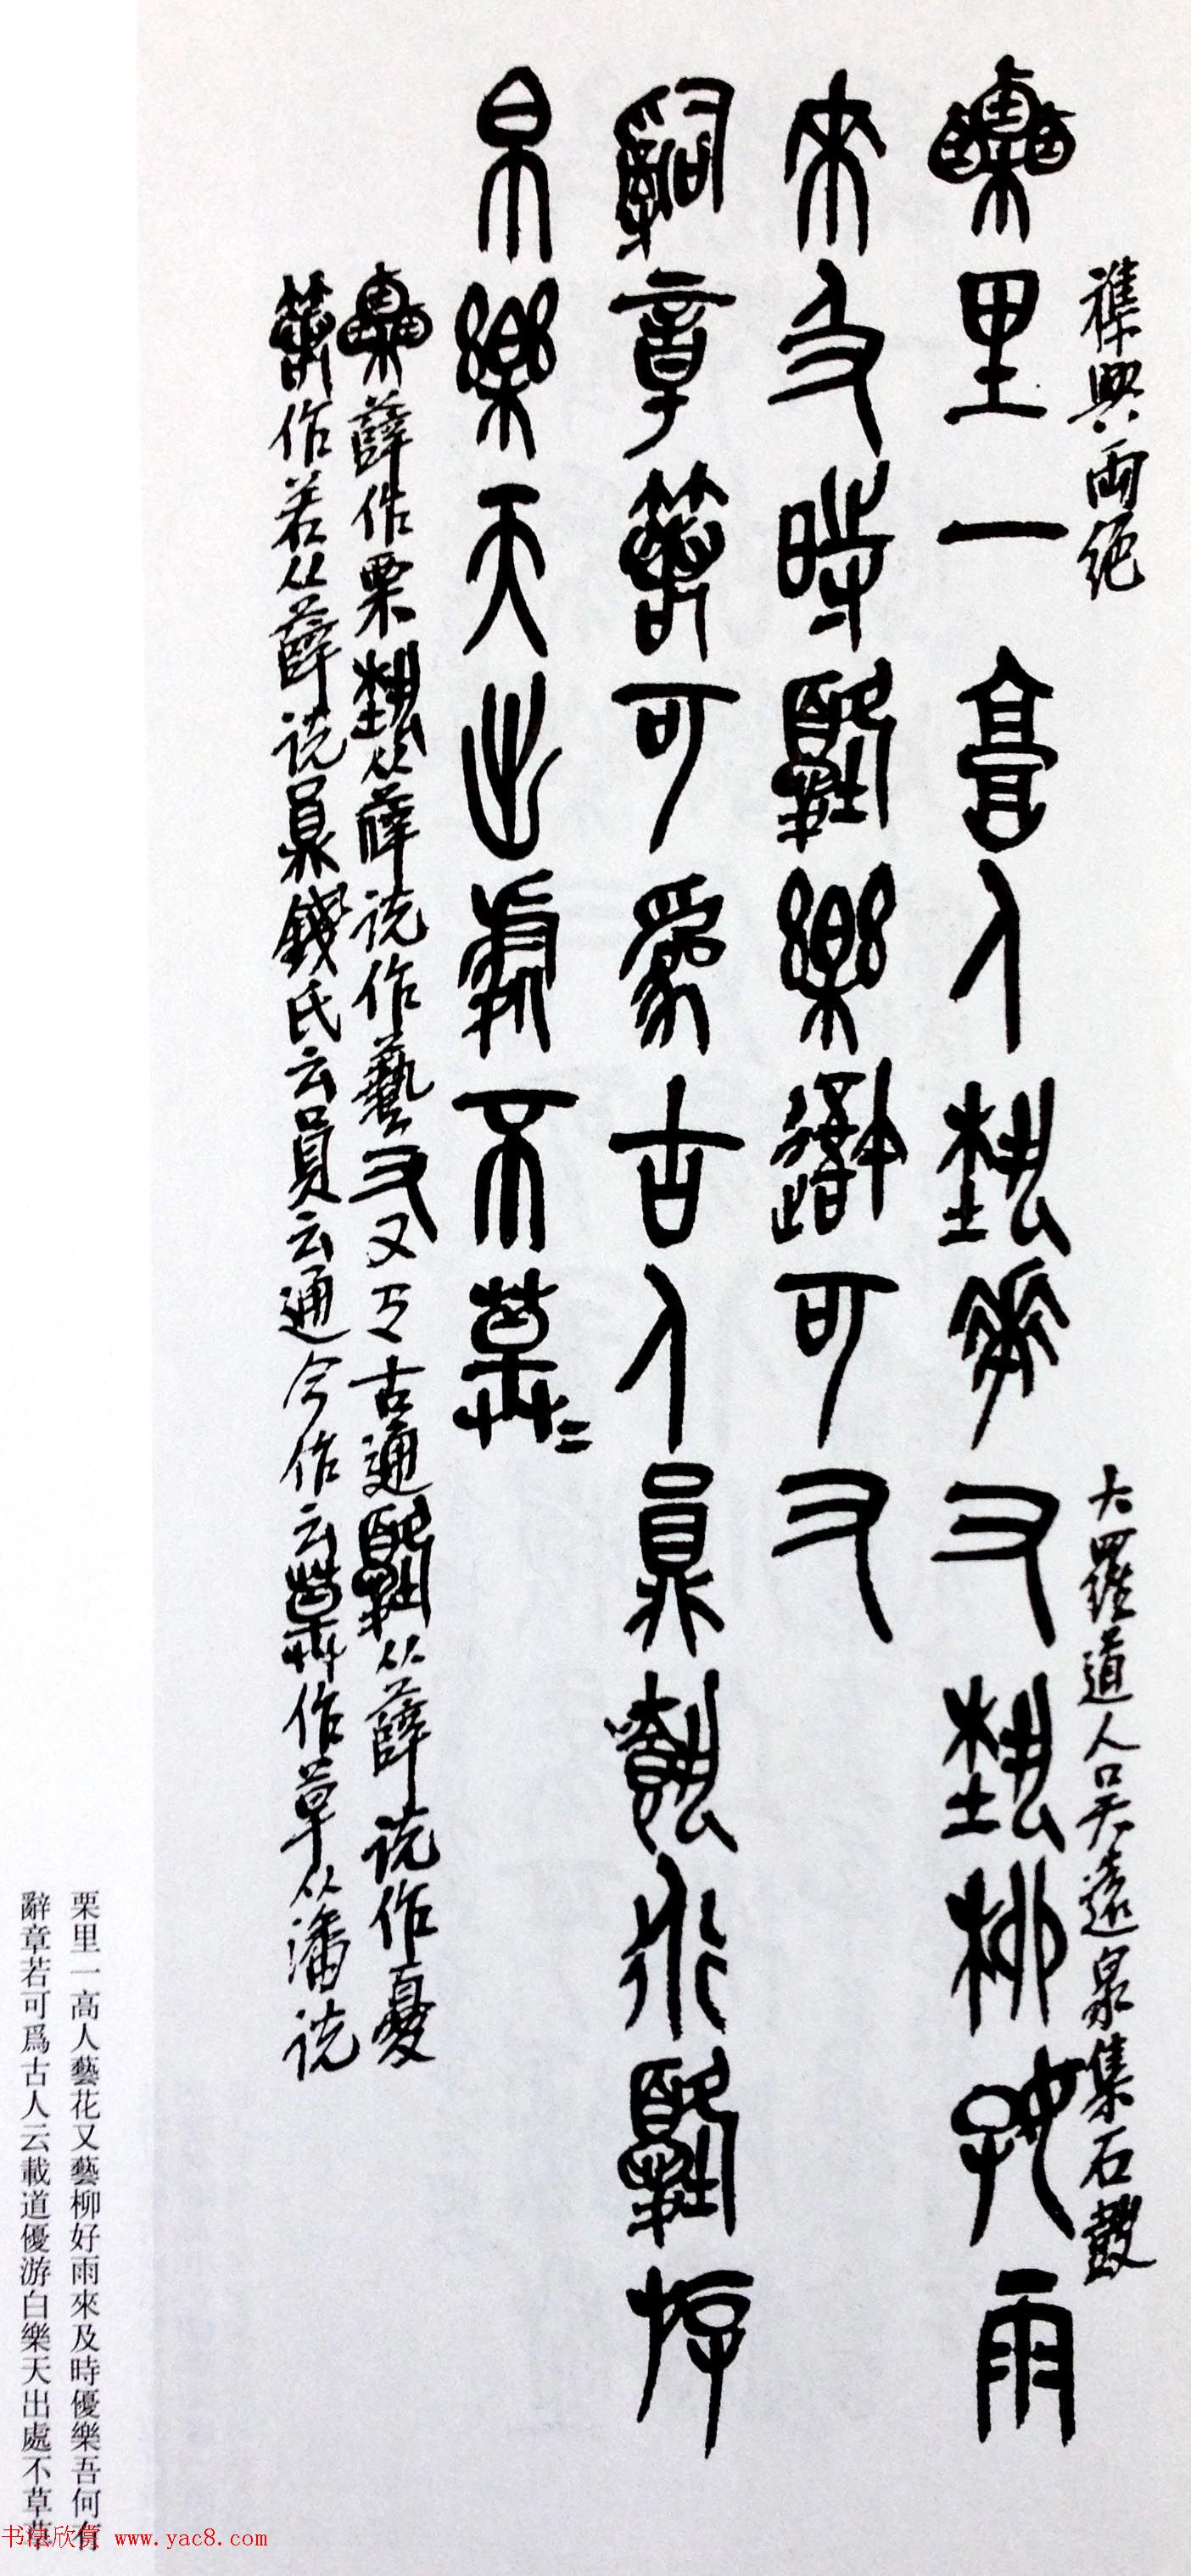 襍興兩絕
大羅道人吳遠泉集石鼓
栗里一高人藝花又藝柳好雨
來及時優樂吾可又
辭章若可爲古人員載道優游
白樂天出處不草=
薛作栗 从薛説作藝 又又古通 从薛説作憂
作若从薛説 員錢氏云員云通今作云 作草从潘説
栗里一高人藝花又藝柳好雨來及時優樂吾何有
辭章若可爲古人云載道優游白樂天出處不草草
书法欣赏 www.yac8.com